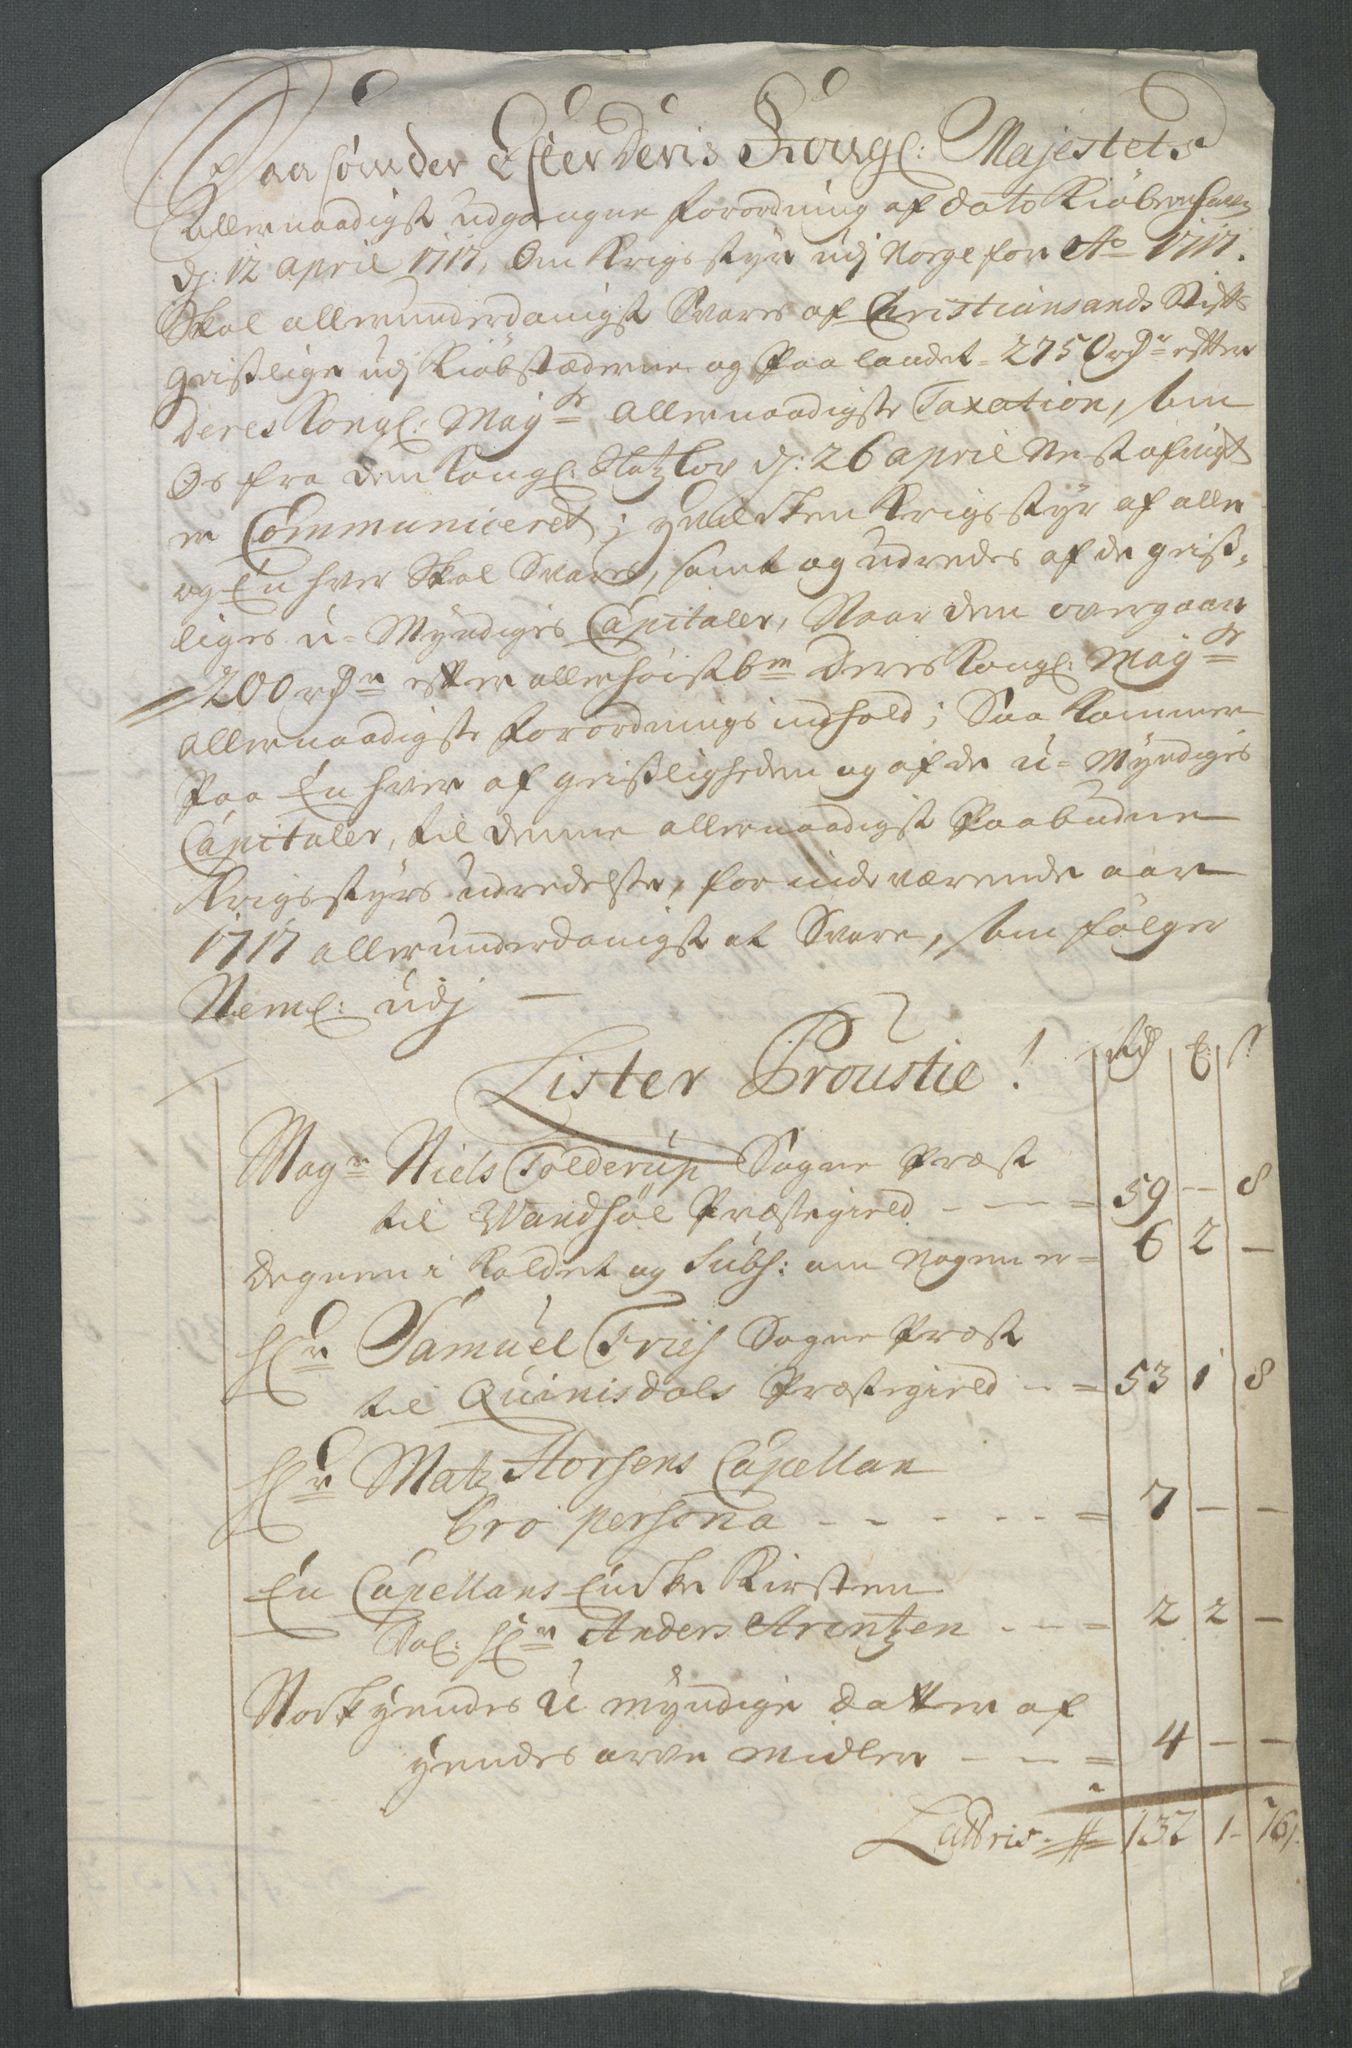 Saasom der Efter Deris Kongl: Majestets
Allernaadigst udgangne forordning af dato Kiöbenhafn
dj: 12 april 1717, Om Krigs styr udj Norge for Ao 1717.
Skal allerunderdanigst Svares af Christiansands Stifts
geistlige udj Kiöbstæderne og Paa landet 2750 rdr efter
deres Kongl: Mayts allernaadigste Taxation, som
Os fra den Kongl: Slotzlov dj: 26 april Nest afvigt
er Communiceret; hvilcken Krigs styr af alle
og En hver Skal Svares, samt og udredes af de geist-
liges u-Myndiges Capitaler, Naar dem overgaar
200 rdr efter allerhöistbm deres Kongl: Mayts
allernaadigste forordnings indhold; Saa Kommer
Paa En hver af geistligheden og af de u-Myndiges
Capitaler, til denne allernaadigst Paabudne
Krigsstyrs udredelse, for inde værende aar
1717 allerunderdanigst at Svare, som fölger
Neml: udj
Lister Proustie! Rd ß
Magr Niels Tolderup Sogne Præst
til Wandsöe Præstegield - - - 59 - 8
Degnen i Kaldet og Subs: om Nogen er - 6 2 -
Hr Samuel Friis Sogne Præst
til Quinisdals Præstegield - - 53 1 8
Hr Matz Storsens Capellan
Pro persona - - - - - 7 - -
En Capellans Encke Kirsten
Sal: Hr Anders Arentzen - - - 2 2 -
Nock hendes U myndige datter af
hendes arve midler - - - 4 - -
Lattris 132 1 - 16